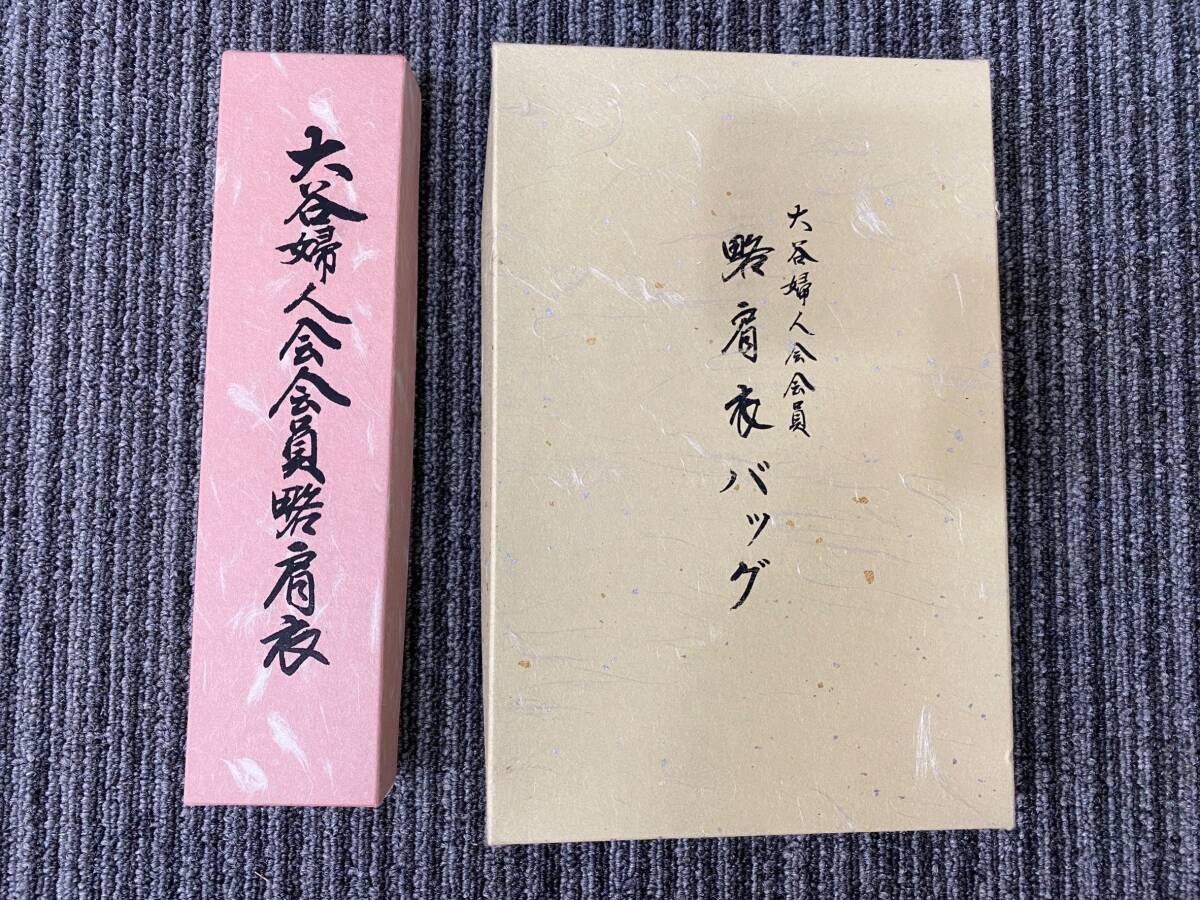 大谷婦人会会員略肩衣
大谷婦人会会員
略肩衣バッグ